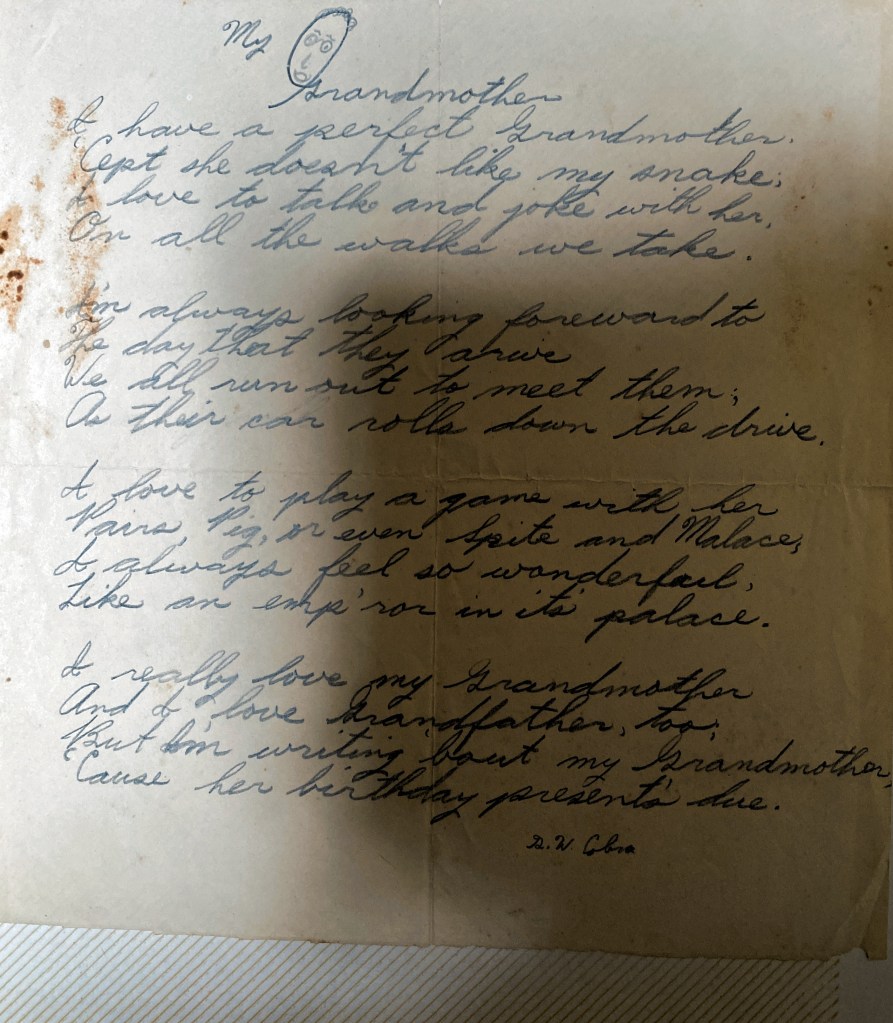 My
Grandmother
I have a perfect Grandmother.
'Cept she doesn't like my snake;
I love to talk and joke with her,
On all the walks we take.
I'm always looking foreward to
The day that they arive
We all run out to meet them;
As their car rolls down the drive.
I love to play a game with her
Pairs, Pig, or even Spite and Malace;
I always feel so wonderfull,
Like an emp'ror in its' palace.
I really love my Grandmother
And I love Grandfather, too;
But I'm writing 'bout my Grandmother,
'Cause her birthday present's due.
Cobra